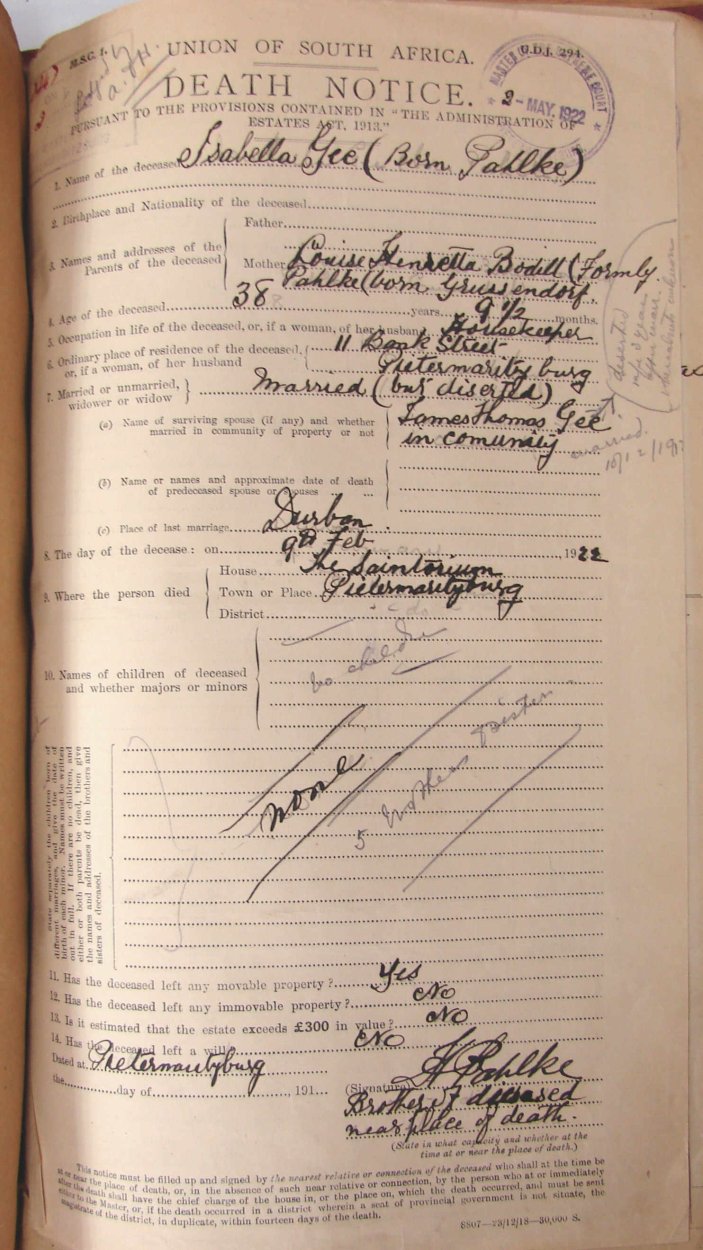 M.S.C. 1.
U.D.J. 294.
UNION OF SOUTH AFRICA.
MASTER COURT
2 - MAY. 1922
DEATH NOTICE.
PURSUANT TO THE PROVISIONS CONTAINED IN "THE ADMINISTRATION OF
ESTATES ACT, 1913."
1. Name of the deceased Isabella Gee (Born Pahlke)
2. Birthplace and Nationality of the deceased
3. Names and addresses of the Parents of the deceased
Father
Mother Louise Henretta Bodill (Formly
Pahlke (born Grussendorf
4. Age of the deceased 38 years 9 1/2 months.
5. Occupation in life of the deceased, or, if a woman, of her husband Housekeeper
6. Ordinary place of residence of the deceased, 11 Bank Street
or, if a woman, of her husband Pietermaritzburg
7. Married or unmarried, widower or widow Married (but diserted)
deserted
(a) Name of surviving spouse (if any) and whether James Thomas Gee
married in community of property or not in comunity
married
(b) Name or names and approximate date of death
of predeceased spouse or spouses ... ...
(c) Place of last marriage Durban
8. The day of the decease: on 9th Feb 1922
9. Where the person died
House The Saintorium
Town or Place Pietermaritzburg
District do
10. Names of children of deceased
and whether majors or minors
no children
State separately the children born of
different marriages, and give the date of
birth of each minor. Names must be written
out in full. If there are no children, and
either or both parents be dead, then give
the names and addresses of the brothers and
sisters of deceased.
none
5 brothers sister
11. Has the deceased left any movable property? Yes
12. Has the deceased left any immovable property? No
13. Is it estimated that the estate exceeds £300 in value? No
14. Has the deceased left a will? No
Dated at Pietermaritzburg
the day of , 191
(Signature) H Pahlke
Brother of deceased
near place of death.
(State in what capacity and whether at the
time at or near the place of death.)
This notice must be filled up and signed by the nearest relative or connection of the deceased who shall at the time be
at or near the place of death, or, in the absence of such near relative or connection, by the person who at or immediately
after the death shall have the chief charge of the house in, or the place on, which the death occurred, and must be sent
either to the Master, or, if the death occurred in a district wherein a seat of provincial government is not situate, the
magistrate of the district, in duplicate, within fourteen days of the death.
8807—23/12/18—30,000 S.